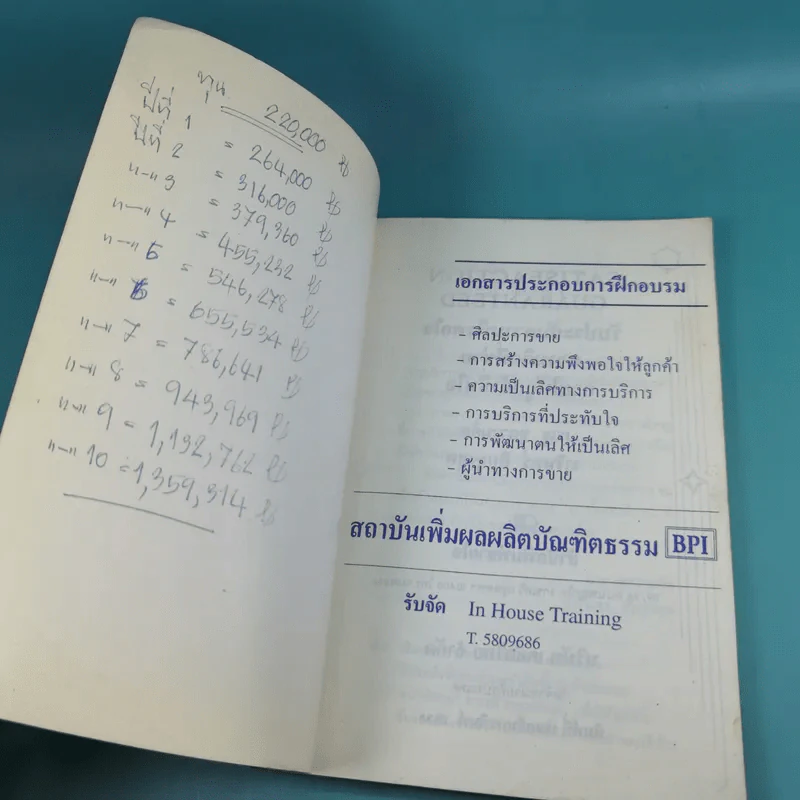 ทุน 220,000 ฿
ปีที่ 1 = 264,000 ฿
ปีที่ 2 = 316,000 ฿
"—" 3 = 379,360 ฿
"—" 4 = 455,232 ฿
"—" 5 = 546,278 ฿
"—" 6 = 655,534 ฿
"—" 7 = 786,641 ฿
"—" 8 = 943,969 ฿
"—" 9 = 1,132,762 ฿
"—" 10 = 1,359,314 ฿
เอกสารประกอบการฝึกอบรม
- ศิลปะการขาย
- การสร้างความพึงพอใจให้ลูกค้า
- ความเป็นเลิศทางการบริการ
- การบริการที่ประทับใจ
- การพัฒนาตนให้เป็นเลิศ
- ผู้นำทางการขาย
สถาบันเพิ่มผลผลิตบัณฑิตธรรม BPI
รับจัด In House Training
T. 5809686